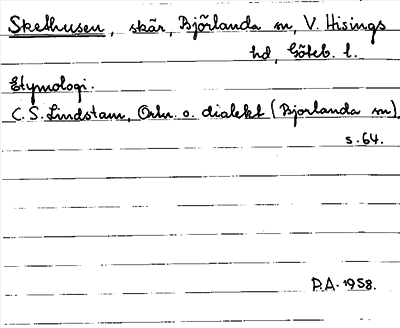 Skethusen, skär, Björlanda sn, V. Hisings
hd, Göteb. l.
Etymologi.
C. S. Lindstam, Ortn. o. dialekt (Bjorlanda sn).
s. 64.
P.A. 1958.